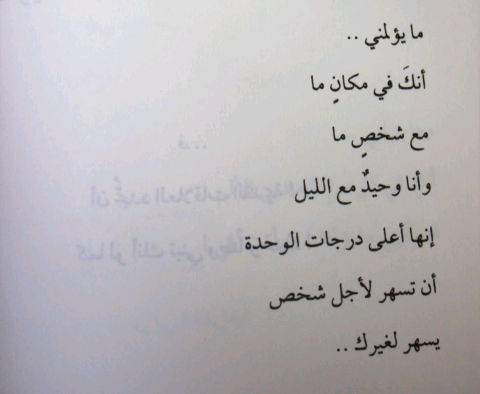 ما يؤلمني ..
أنكَ في مكانٍ ما
مع شخصٍ ما
وأنا وحيدٌ مع الليل
إنها أعلى درجات الوحدة
أن تسهر لأجل شخص
يسهر لغيرك ..